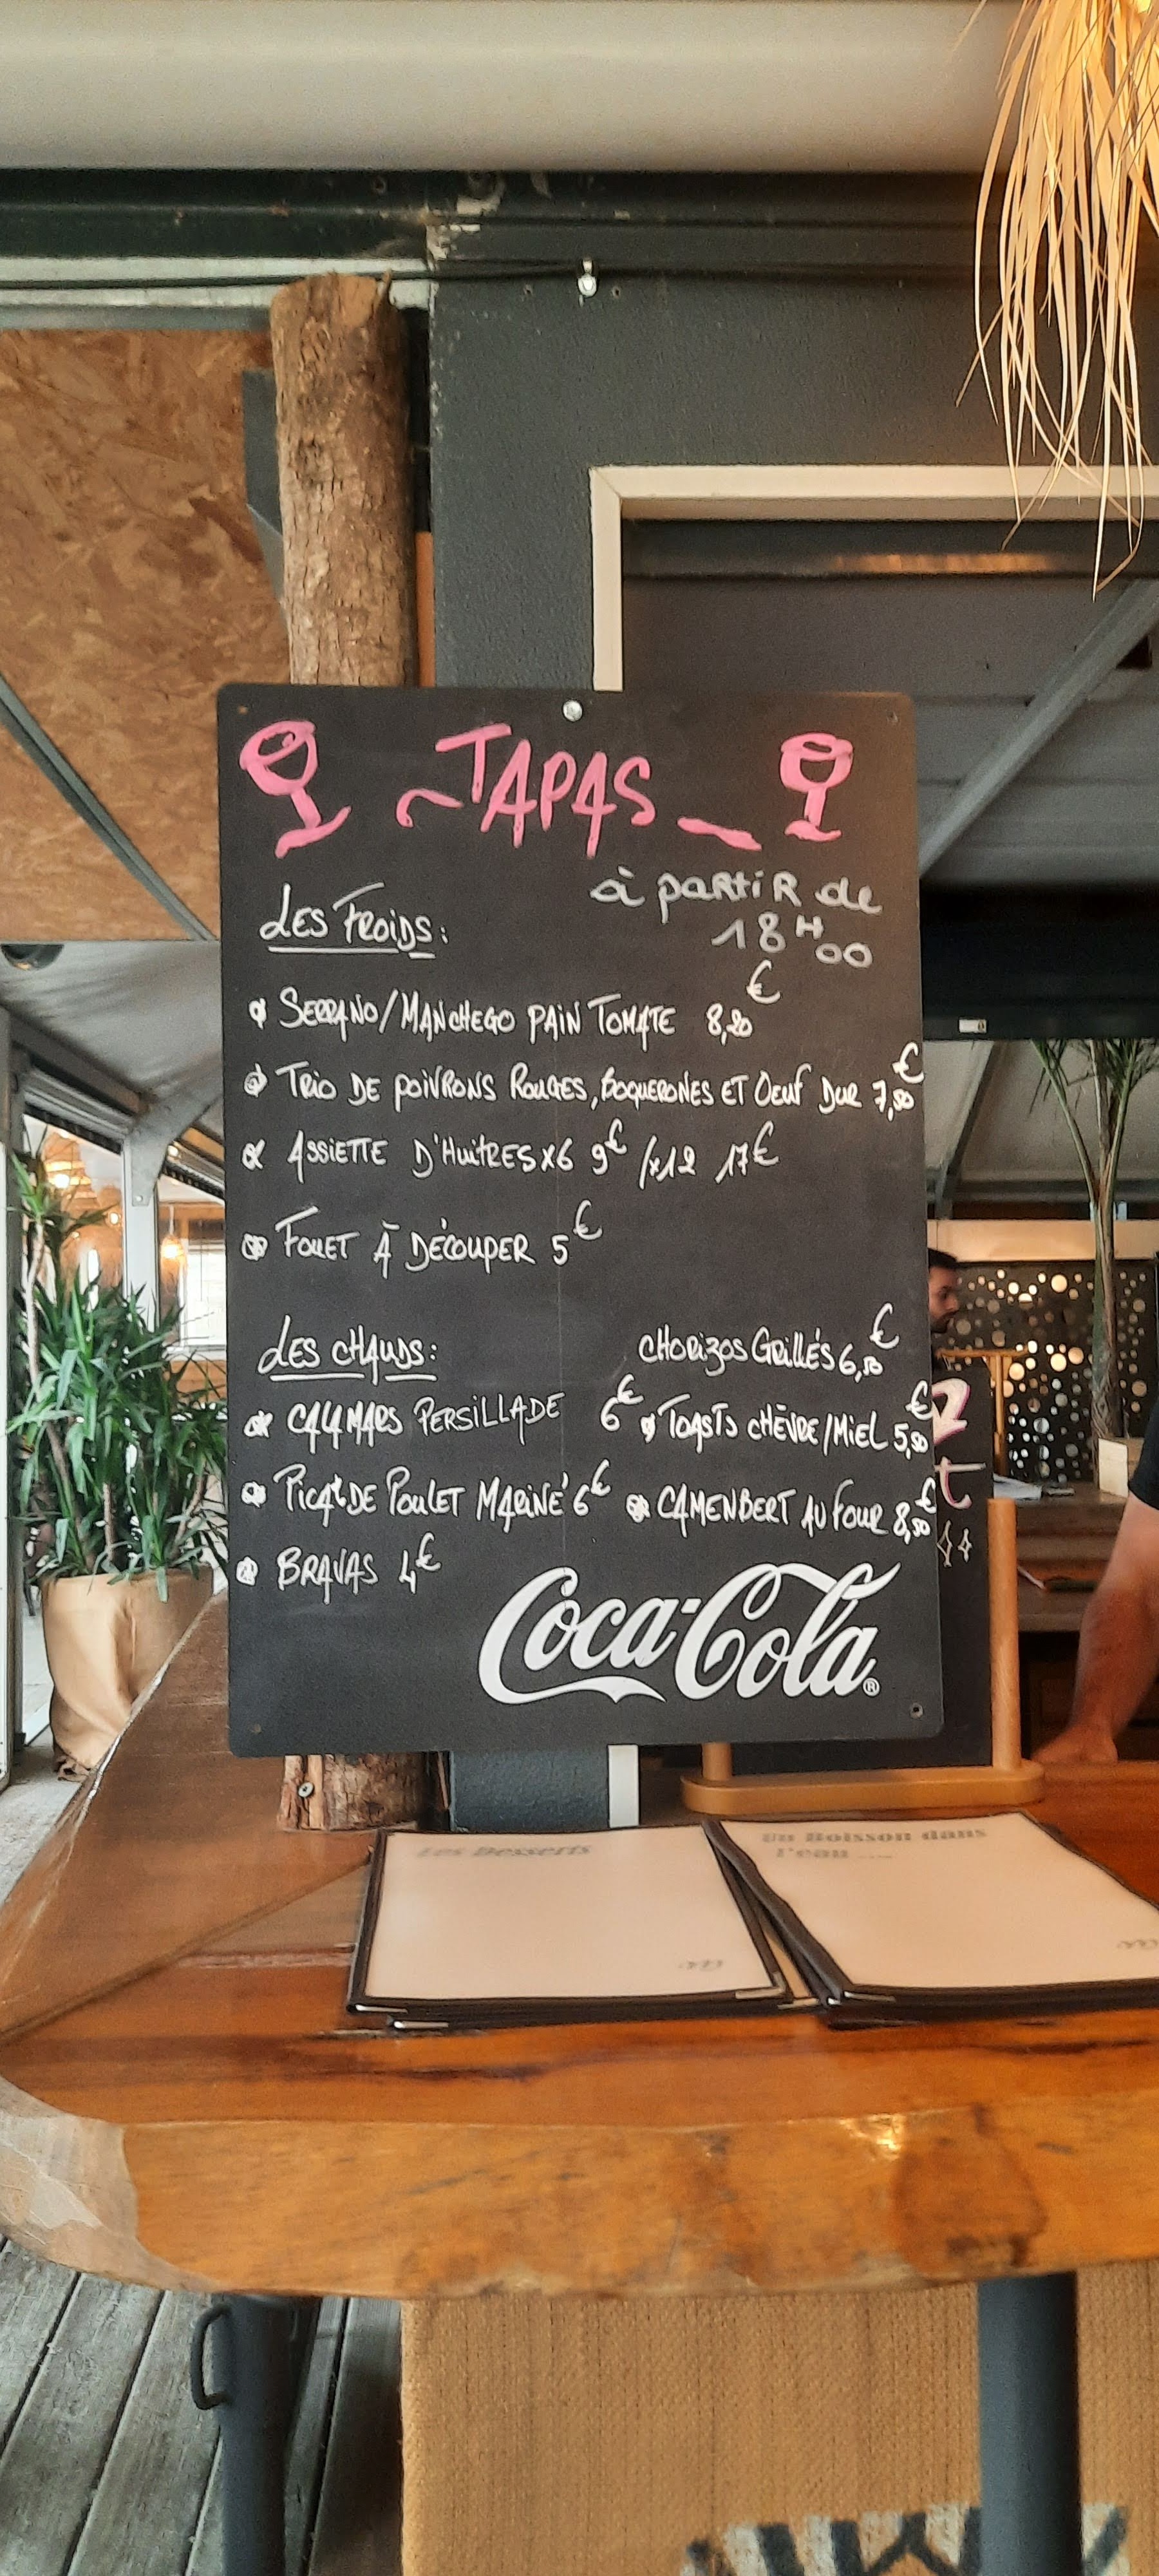 ~TAPAS~
à partir de
18H00
LES FROIDS:
SERRANO/MANCHEGO PAIN TOMATE 8,20€
TRIO DE POIVRONS ROUGES, BOQUERONES ET OEUF DUR 7,50€
ASSIETTE D'HUITRES X6 9€ /X12 17€
FOUET À DÉCOUPER 5€
LES CHAUDS:
CALAMARS PERSILLADE 6€
PICA DE POULET MARINÉ 6€
BRAVAS 4€
CHORIZOS GRILLÉS 6,50€
TOASTS CHÈVRE/MIEL 5,50€
CAMENBERT AU FOUR 8,50€
Coca-Cola®
Les Desserts
Un Boisson dans
l'eau ....